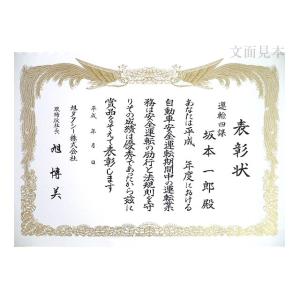 文面見本
表彰状
運輸四課
坂本一郎殿
あなたは平成　年度における
自動車安全運転期間中の運転業
務は安全運転の励行と法規則を守
りその成績は優秀であったから茲に
賞品をそえて表彰します
平成　年　月　日
旭タクシー株式会社
取締役社長　旭博美